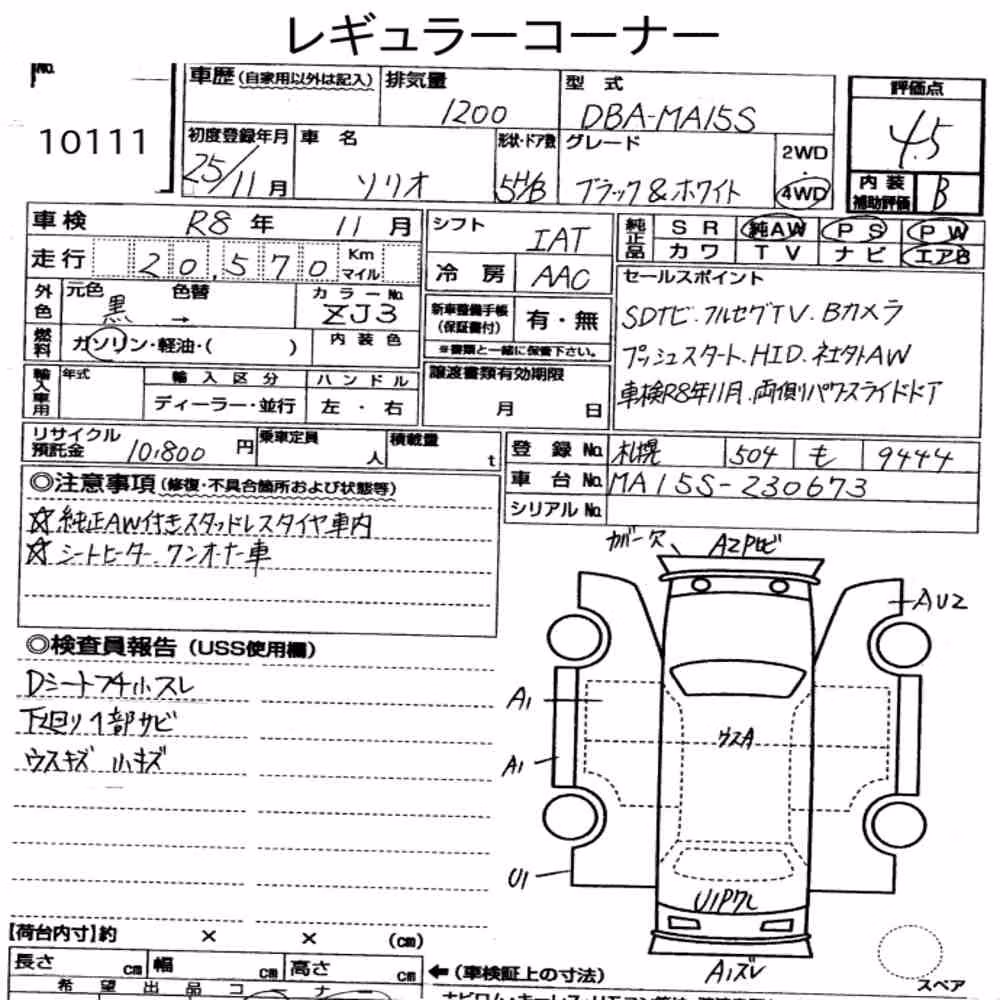 レギュラーコーナー
No.
10111
車歴 (自家用以外は記入)
排気量 1200
型式 DBA-MA15S
評価点 4.5
初度登録年月 25/11月
車名 ソリオ
形状・ドア数 5H/B
グレード ブラック&ホワイト
2WD
・
4WD
内装補助評価 B
車検 R8年 11月
走行 20,570 Km マイル
シフト IAT
冷房 AAC
純正品 SR 純AW PS PW
カワ TV ナビ エアB
外色 元色 黒 色替 → カラーNo. ZJ3
燃料 ガソリン・軽油・( )
内装色
新車整備手帳 (保証書付) 有・無
※書類と一緒に保管下さい。
セールスポイント
SDナビ.フルセグTV.Bカメラ
プッシュスタート.HID.社外AW
車検R8年11月.両側パワースライドドア
輸入車用 年式
輸入区分 ディーラー・並行
ハンドル 左・右
譲渡書類有効期限
月 日
リサイクル預託金 10,800 円
乗車定員 人
積載量 t
登録No. 札幌 504 も 9444
車台No. MA15S-230673
シリアルNo.
◎注意事項 (修復・不具合箇所および状態等)
☆純正AW付きスタッドレスタイヤ車内
☆シートヒーター.ワンオーナー車
◎検査員報告 (USS使用欄)
Dシートフチ小スレ
下廻り1部サビ
ウスキズ 小キズ
カバー欠
A2Pトビ
AU2
A1
ウスA
A1
U1
U1Pワレ
A1ズレ
スペア
【荷台内寸】約 × × (cm)
長さ cm 幅 cm 高さ cm
←(車検証上の寸法)
希望出品コーナー